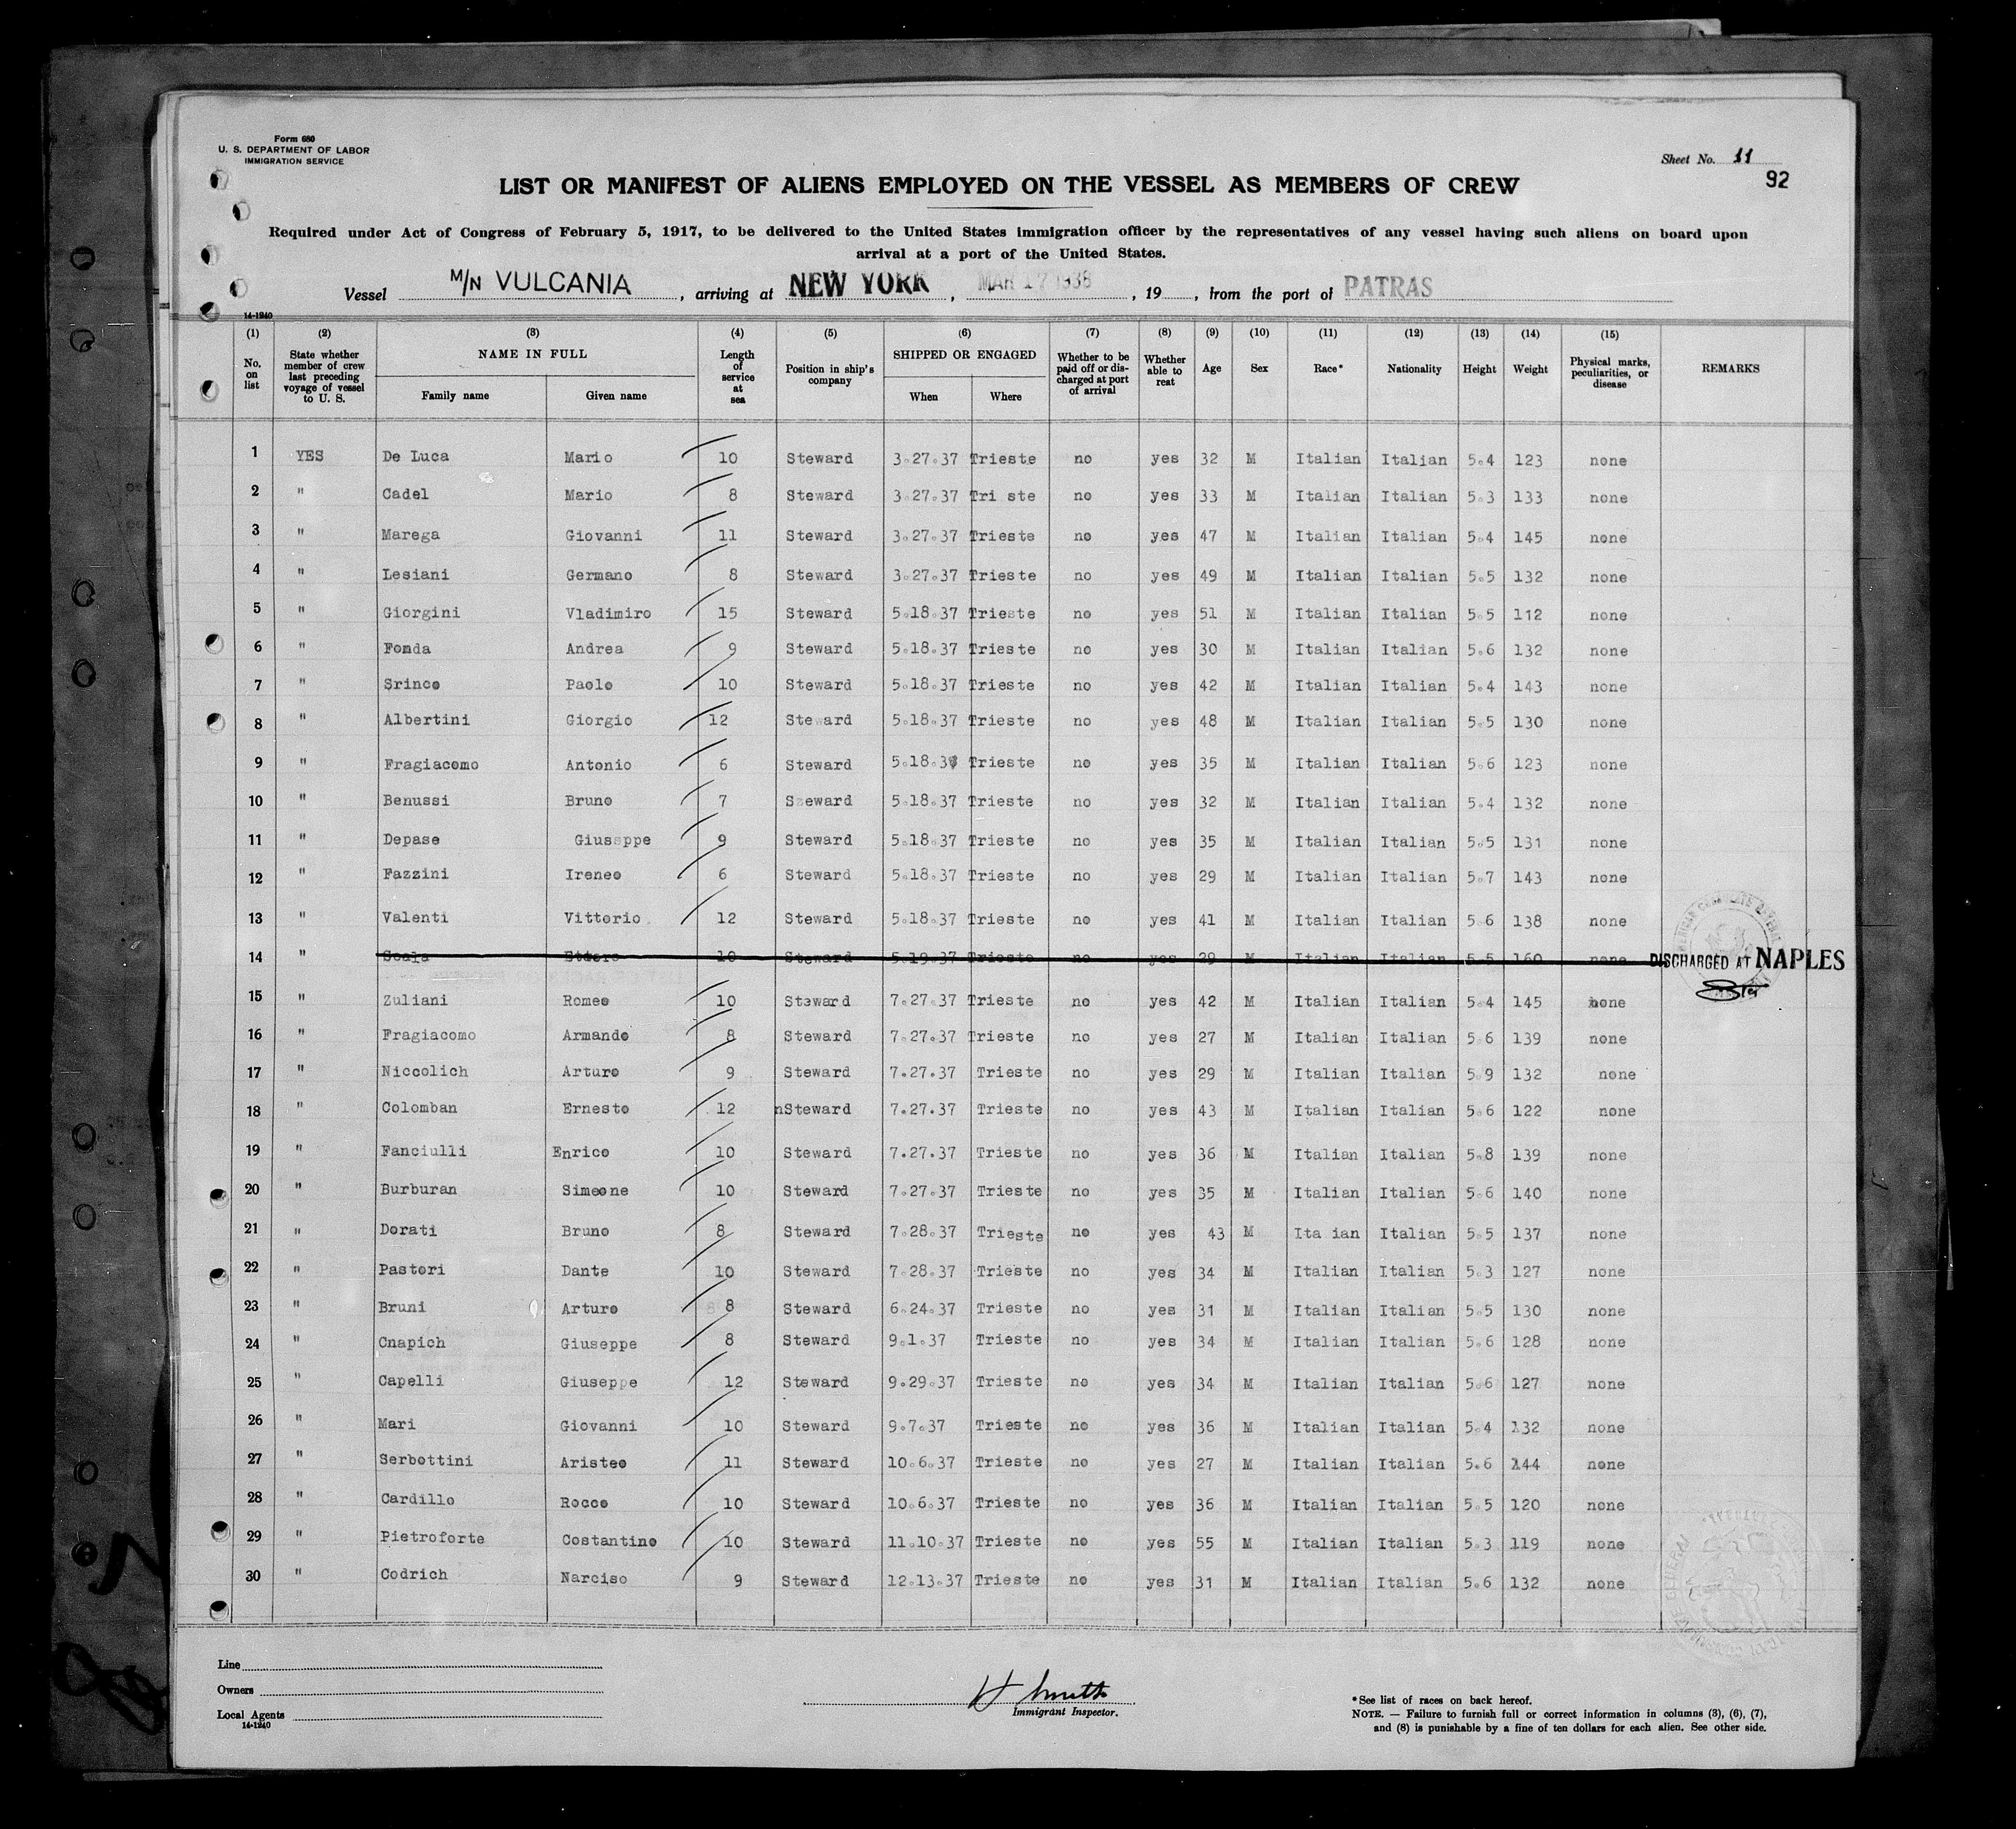 Form 680
U. S. DEPARTMENT OF LABOR
IMMIGRATION SERVICE
Sheet No. 11
92
LIST OR MANIFEST OF ALIENS EMPLOYED ON THE VESSEL AS MEMBERS OF CREW
Required under Act of Congress of February 5, 1917, to be delivered to the United States immigration officer by the representatives of any vessel having such aliens on board upon
arrival at a port of the United States.
Vessel M/N VULCANIA, arriving at NEW YORK, MAR 17 1938, 19 , from the port of PATRAS
14-1240
(1) (2) (3) (4) (5) (6) (7) (8) (9) (10) (11) (12) (13) (14) (15)
No. on list State whether member of crew last preceding voyage of vessel to U. S. NAME IN FULL Family name Given name Length of service at sea Position in ship's company SHIPPED OR ENGAGED When Where Whether to be paid off or discharged at port of arrival Whether able to reat Age Sex Race* Nationality Height Weight Physical marks, peculiarities, or disease REMARKS
1 YES De Luca Mario 10 Steward 3.27.37 Trieste no yes 32 M Italian Italian 5.4 123 none
2 " Cadel Mario 8 Steward 3.27.37 Tri ste no yes 33 M Italian Italian 5.3 133 none
3 " Marega Giovanni 11 Steward 3.27.37 Trieste no yes 47 M Italian Italian 5.4 145 none
4 " Lesiani Germano 8 Steward 3.27.37 Trieste no yes 49 M Italian Italian 5.5 132 none
5 " Giorgini Vladimiro 15 Steward 5.18.37 Trieste no yes 51 M Italian Italian 5.5 112 none
6 " Fonda Andrea 9 Steward 5.18.37 Trieste no yes 30 M Italian Italian 5.6 132 none
7 " Srinco Paolo 10 Steward 5.18.37 Trieste no yes 42 M Italian Italian 5.4 143 none
8 " Albertini Giorgio 12 Steward 5.18.37 Trieste no yes 48 M Italian Italian 5.5 130 none
9 " Fragiacomo Antonio 6 Steward 5.18.37 Trieste no yes 35 M Italian Italian 5.6 123 none
10 " Benussi Bruno 7 Szeward 5.18.37 Trieste no yes 32 M Italian Italian 5.4 132 none
11 " Depase Giusppe 9 Steward 5.18.37 Trieste no yes 35 M Italian Italian 5.5 131 none
12 " Fazzini Ireneo 6 Steward 5.18.37 Trieste no yes 29 M Italian Italian 5.7 143 none
13 " Valenti Vittorio 12 Steward 5.18.37 Trieste no yes 41 M Italian Italian 5 6 138 none
14 " Scala Ettore 10 Steward 5.19.37 Trieste no yes 29 M Italian Italian 5.5 160 none DISCHARGED AT NAPLES
15 " Zuliani Romeo 10 Steward 7.27.37 Trieste no yes 42 M Italian Italian 5.4 145 none
16 " Fragiacomo Armando 8 Steward 7.27.37 Trieste no yes 27 M Italian Italian 5 6 139 none
17 " Niccolich Arturo 9 Steward 7.27.37 Trieste no yes 29 M Italian Italian 5.9 132 none
18 " Colomban Ernesto 12 nSteward 7.27.37 Trieste no yes 43 M Italian Italian 5.6 122 none
19 " Fanciulli Enrico 10 Steward 7.27.37 Trieste no yes 36 M Italian Italian 5.8 139 none
20 " Burburan Simeone 10 Steward 7.27.37 Trieste no yes 35 M Italian Italian 5.6 140 none
21 " Dorati Bruno 8 Steward 7.28.37 Trieste no yes 43 M Ita ian Italian 5.5 137 none
22 " Pastori Dante 10 Steward 7.28.37 Trieste no yes 34 M Italian Italian 5.3 127 none
23 " Bruni Arturo 8 Steward 6.24.37 Trieste no yes 31 M Italian Italian 5.5 130 none
24 " Cnapich Giuseppe 8 Steward 9.1.37 Trieste no yes 34 M Italian Italian 5.6 128 none
25 " Capelli Giuseppe 12 Steward 9.29.37 Trieste no yes 34 M Italian Italian 5.6 127 none
26 " Mari Giovanni 10 Steward 9.7.37 Trieste no yes 36 M Italian Italian 5.4 132 none
27 " Serbottini Aristeo 11 Steward 10.6.37 Trieste no yes 27 M Italian Italian 5.6 144 none
28 " Cardillo Rocco 10 Steward 10.6.37 Trieste no yes 36 M Italian Italian 5.5 120 none
29 " Pietroforte Costantino 10 Steward 11.10.37 Trieste no yes 55 M Italian Italian 5.3 119 none
30 " Codrich Narciso 9 Steward 12.13.37 Trieste no yes 31 M Italian Italian 5.6 132 none
Line
Owners
Local Agents
14-1240
H Smith
Immigrant Inspector.
*See list of races on back hereof.
NOTE. — Failure to furnish full or correct information in columns (3), (6), (7),
and (8) is punishable by a fine of ten dollars for each alien. See other side.